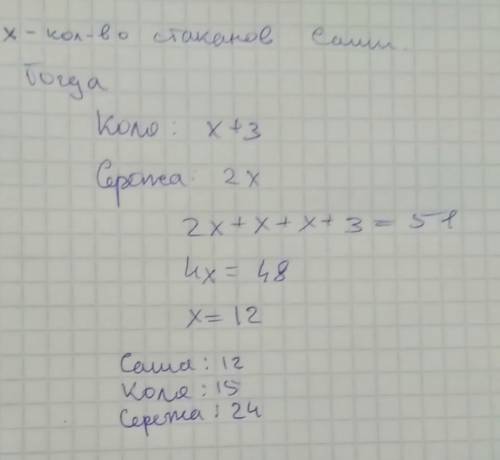 x - кол-во стаканов Саши.
Тогда
Коля: x+3
Сережа: 2x
2x + x + x + 3 = 51
4x = 48
x = 12
Саша: 12
Коля: 15
Сережа: 24